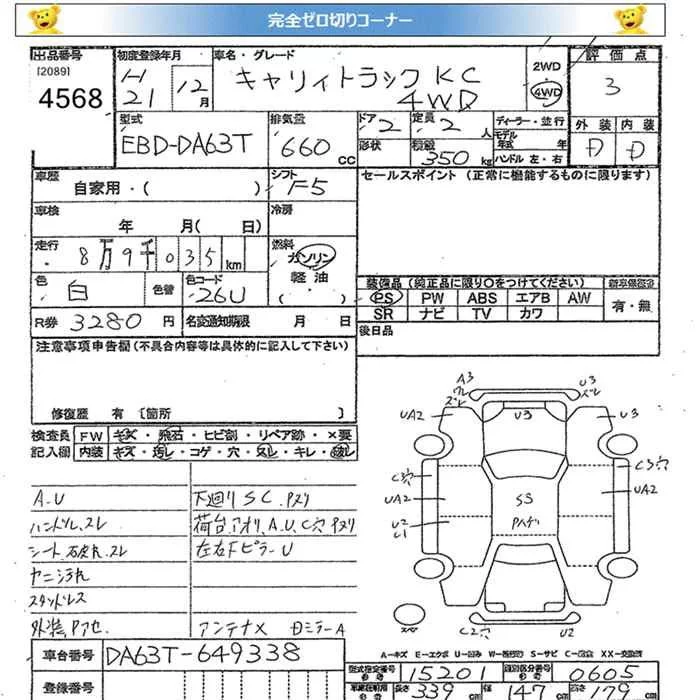 完全ゼロ切りコーナー
出品番号 初度登録年月 車名・グレード 2WD 評価点
[2089] H 12 キャリィトラック KC 4WD 3
4568 21 月 4WD
型式 排気量 ドア 2 定員 2 人 ディーラー・並行 外装 内装
EBD-DA63T 660 cc 形状 積載 350 kg モデル年式 年 D D
ハンドル 左・右
車歴 自家用・( ) シフト F5 セールスポイント (正常に機能するものに限ります)
車検 年 月( 日) 冷房
走行 8万9千035 km 燃料 ガソリン
軽油
( )
色 白 色替 色コード 26U 装備品(純正品に限り○をつけてください)
PS PW ABS エアB AW 有・無
SR ナビ TV カワ
R券 3280 円 名変通知期限 月 日 後日品
注意事項申告欄(不具合内容等は具体的に記入して下さい)
修復歴 有 〔箇所 〕
検査員 FW キズ・飛石・ヒビ割・リペア跡・×要
記入欄 内装 キズ・汚レ・コゲ・穴・スレ・キレ・破レ
A.U 下廻り SC. Pヌリ
ハンドル.スレ 荷台.アオリ.A.U.C穴 Pヌリ
シート.破れ.スレ 左右FピラーU
ヤニ汚れ
スタッドレス
アンテナX
車台番号 DA63T-649338
登録番号
A3 U3
ズレ
UA2 U3 U3
C穴
UA2 UA2
S5
U2
C2穴 U2
A-キズ E-エクボ U-凹み W-板修跡 S-サビ C-腐食 XX-交換済
型式指定番号 15201 類別区分番号 0605
長さ 339 cm 幅 147 cm 高さ 179 cm